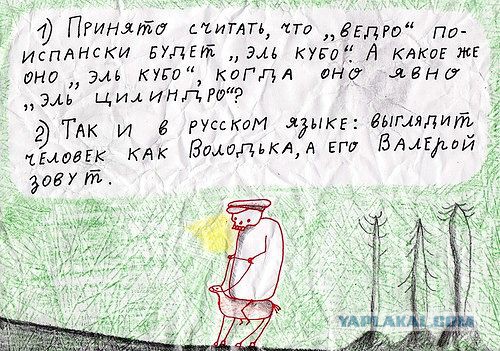 1) Принято считать, что „ведро“ по-
испански будет „эль кубо“. А какое же
оно „эль кубо“, когда оно явно
„эль цилиндро“?
2) Так и в русском языке: выглядит
человек как Володька, а его Валерой
зовут.
YAPLAKAL.COM